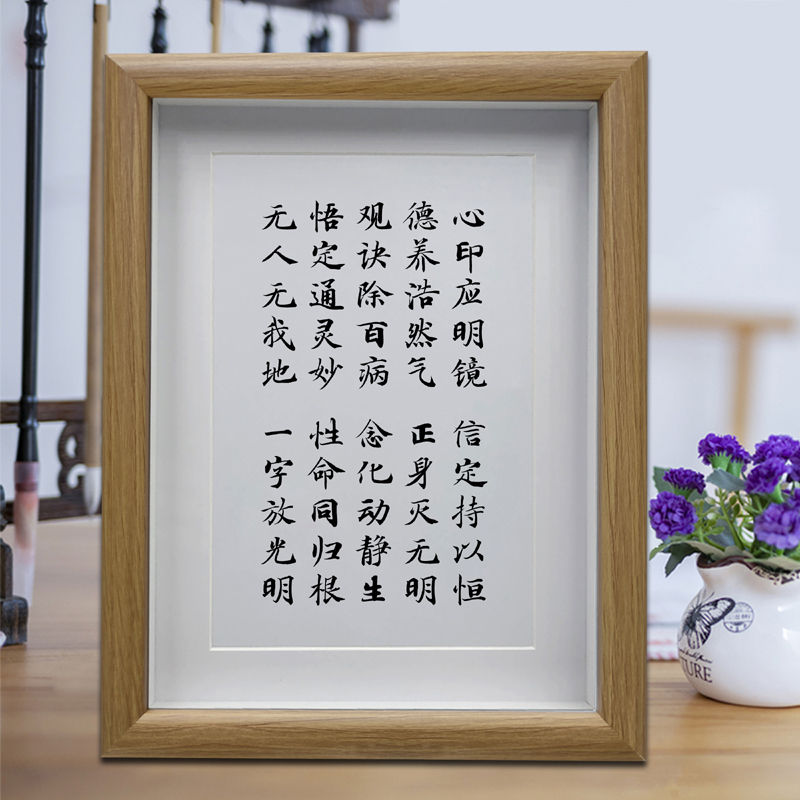 心印应明镜 信定持以恒
德养浩然气 正身灭无明
观诀除百病 念化动静生
悟定通灵妙 性命同归根
无人无我地 一字放光明
TURE